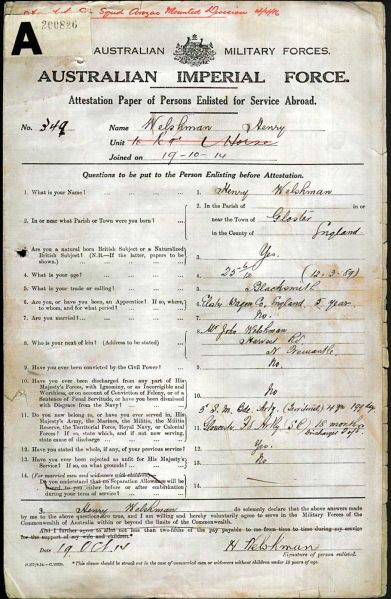 A
200826
AUSTRALIAN MILITARY FORCES.
AUSTRALIAN IMPERIAL FORCE.
Attestation Paper of Persons Enlisted for Service Abroad.
No. 349 Name Welshman Henry
Unit Horse
Joined on 19-10-14
Questions to be put to the Person Enlisting before Attestation.
1. What is your Name? 1. Henry Welshman
2. In or near what Parish or Town were you born? 2. In the Parish of in or
near the Town of Gloster
in the County of England
3. Are you a natural born British Subject or a Naturalized
British Subject? (N.B.—If the latter, papers to be
shown). 3. Yes.
4. What is your age? 4. 25
5. What is your trade or calling? 5. Blacksmith
6. Are you, or have you been, an Apprentice? If so, where,
to whom, and for what period? 6. England. 5 year.
7. Are you married? 7. No.
8. Who is your next of kin? (Address to be stated) 8. Mr John Welshman
Rd.
N Fremantle
9. Have you ever been convicted by the Civil Power? 9. No
10. Have you ever been discharged from any part of His
Majesty's Forces, with Ignominy, or as Incorrigible and
Worthless, or on account of Conviction of Felony, or of a
Sentence of Penal Servitude, or have you been dismissed
with Disgrace from the Navy? 10. No
11. Do you now belong to, or have you ever served in, His
Majesty's Army, the Marines, the Militia, the Militia
Reserve, the Territorial Force, Royal Navy, or Colonial
Forces? If so, state which, and if not now serving,
state cause of discharge 11.
12. Have you stated the whole, if any, of your previous service? 12. Yes.
13. Have you ever been rejected as unfit for His Majesty's
Service? If so, on what grounds? 13. No
14. (For married men and widowers with children)
Do you understand that no Separation Allowance will be
to you either before or after embarkation
during your term of service? 14.
I, Henry Welshman do solemnly declare that the above answers made
by me to the above questions are true, and I am willing and hereby voluntarily agree to serve in the Military Forces of the
Commonwealth of Australia within or beyond the limits of the Commonwealth.
And I further agree to allot not less than two-fifths of the pay payable to me from time to time during my service
for the support of my wife and children.
Date 19 Oct 14 H Welshman
Signature of person enlisted.
* This clause should be struck out in the case of unmarried men or widowers without children under 18 years of age.